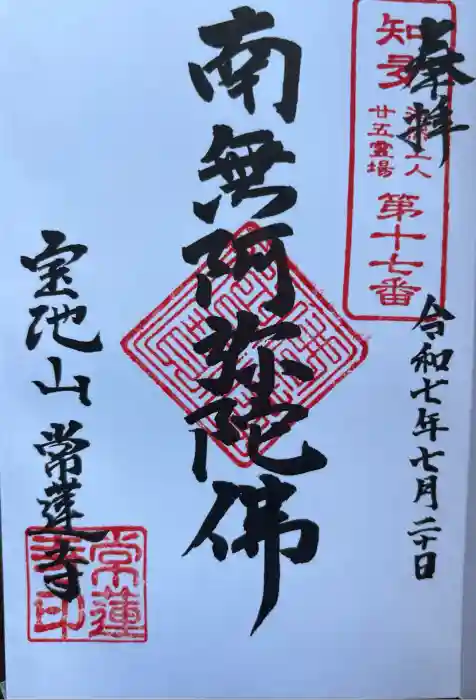 奉拝
知多
法然上人
廿五霊場
第十七番
令和七年七月二十日
南無阿弥陀佛
宝池山 常蓮寺
常蓮
寺印